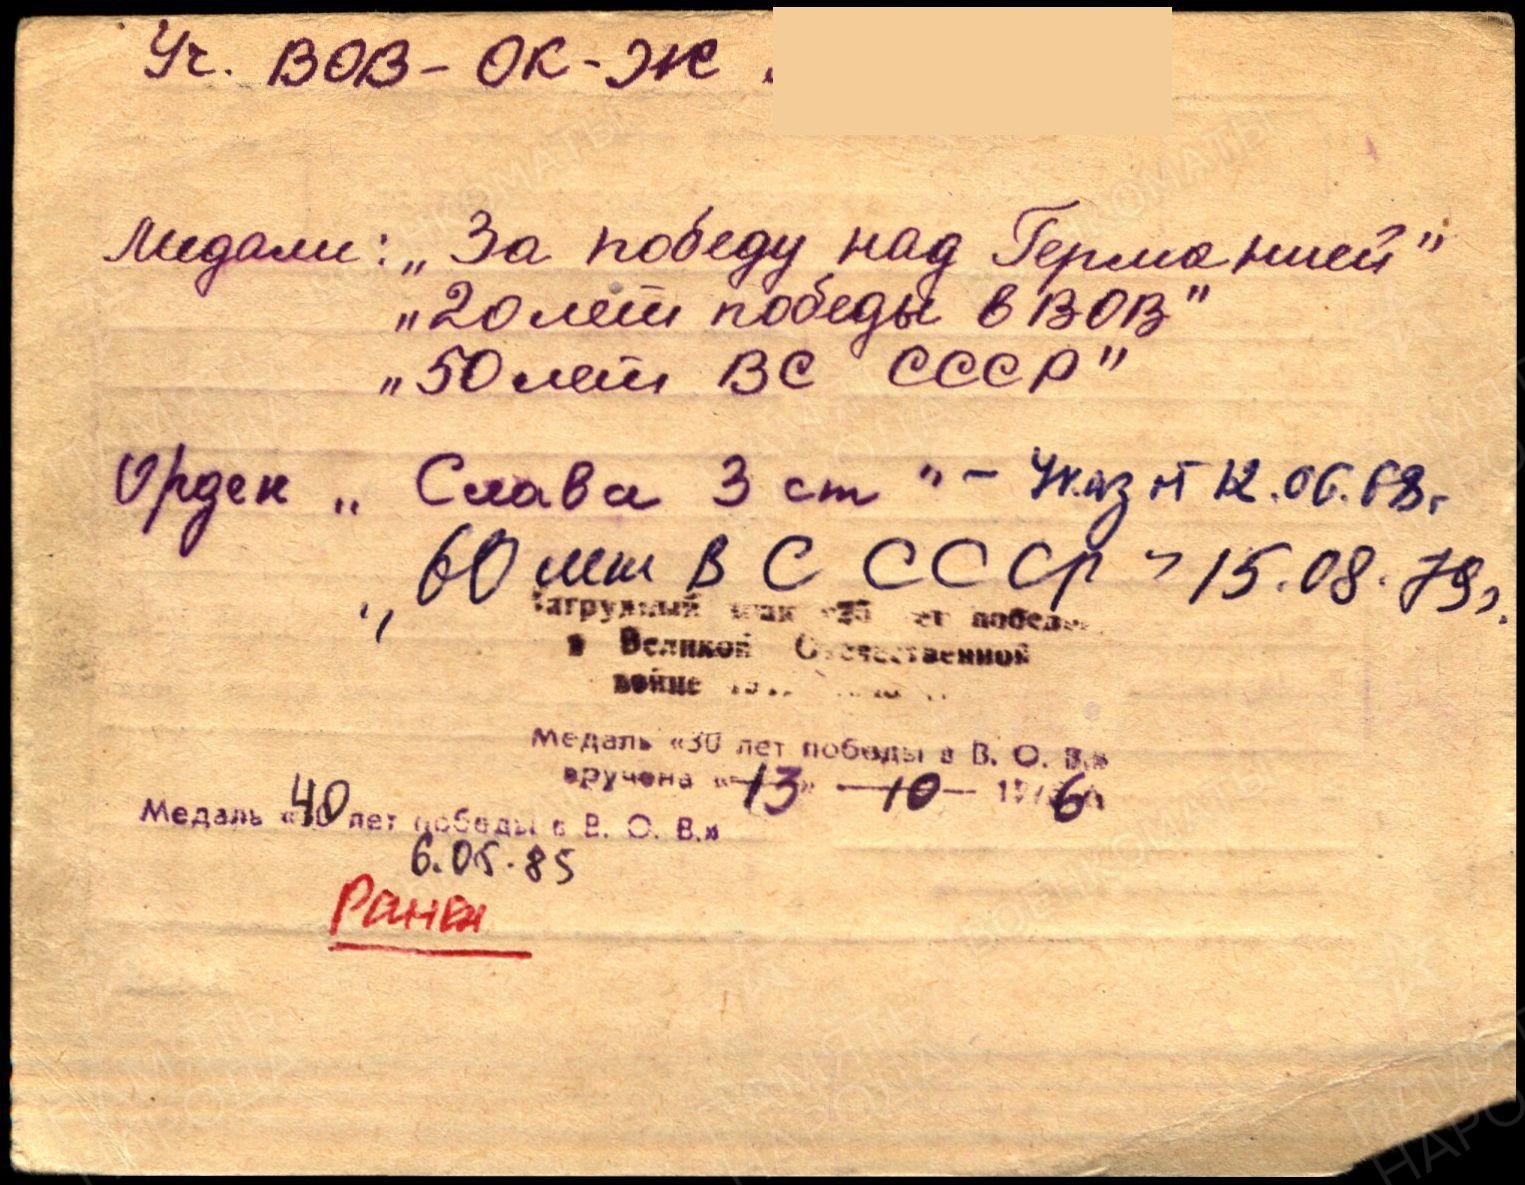 Уч. ВОВ - ОК - Ж
Медали: „За победу над Германией"
„20 лет победы в ВОВ"
„50 лет ВС СССР"
Орден „Слава 3 ст" - Указ от 12.06.68г.
„60 лет ВС СССР - 15.08.79г.
Нагрудный знак «25 лет победы
в Великой Отечественной
войне
Медаль «30 лет победы в В. О. В.»
вручена «13» 10 1976
Медаль «40 лет победы в В. О. В.»
6.05.85
Ранен
ПАМЯТЬ НАРОДА
ВОЕНКОМАТЫ